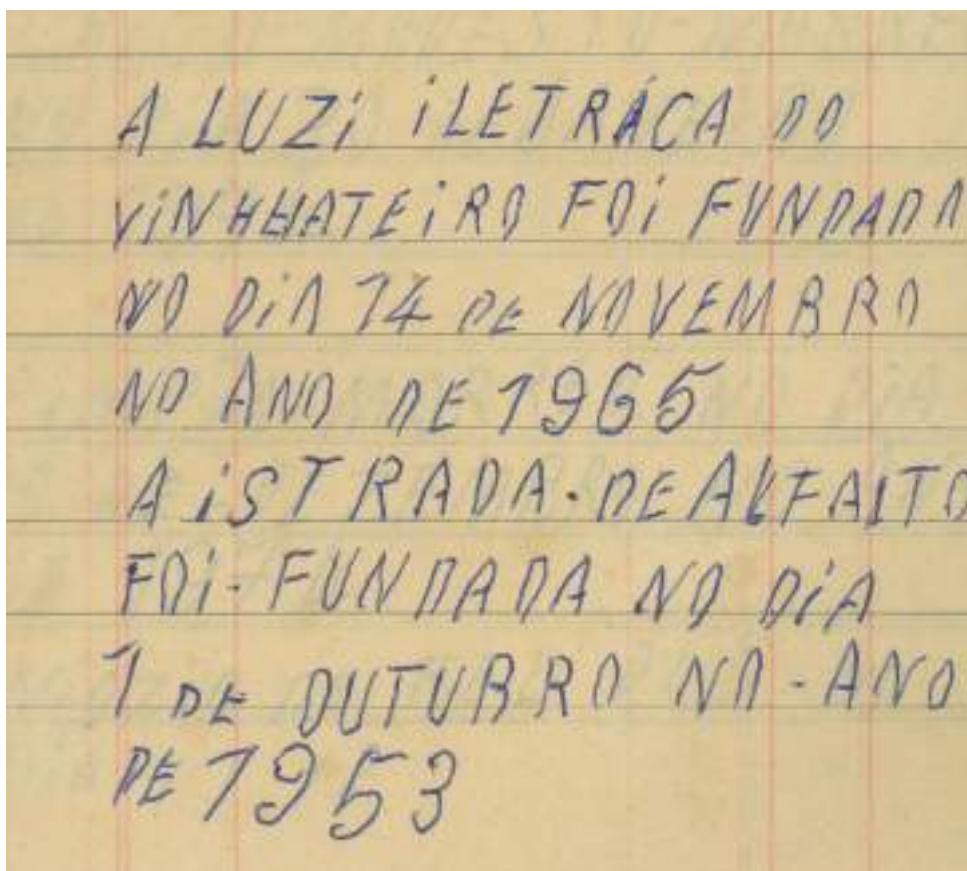 A LUZi iLETRÁCA DO
ViNHHATEiRO FOi FUNDADA
NO DiA 14 DE NOVEMBRO
NO ANO DE 1965
A iSTRADA. DE ALFAITO
FOi-FUNDADA NO DiA
1 DE OUTUBRO NO-ANO
DE 1953